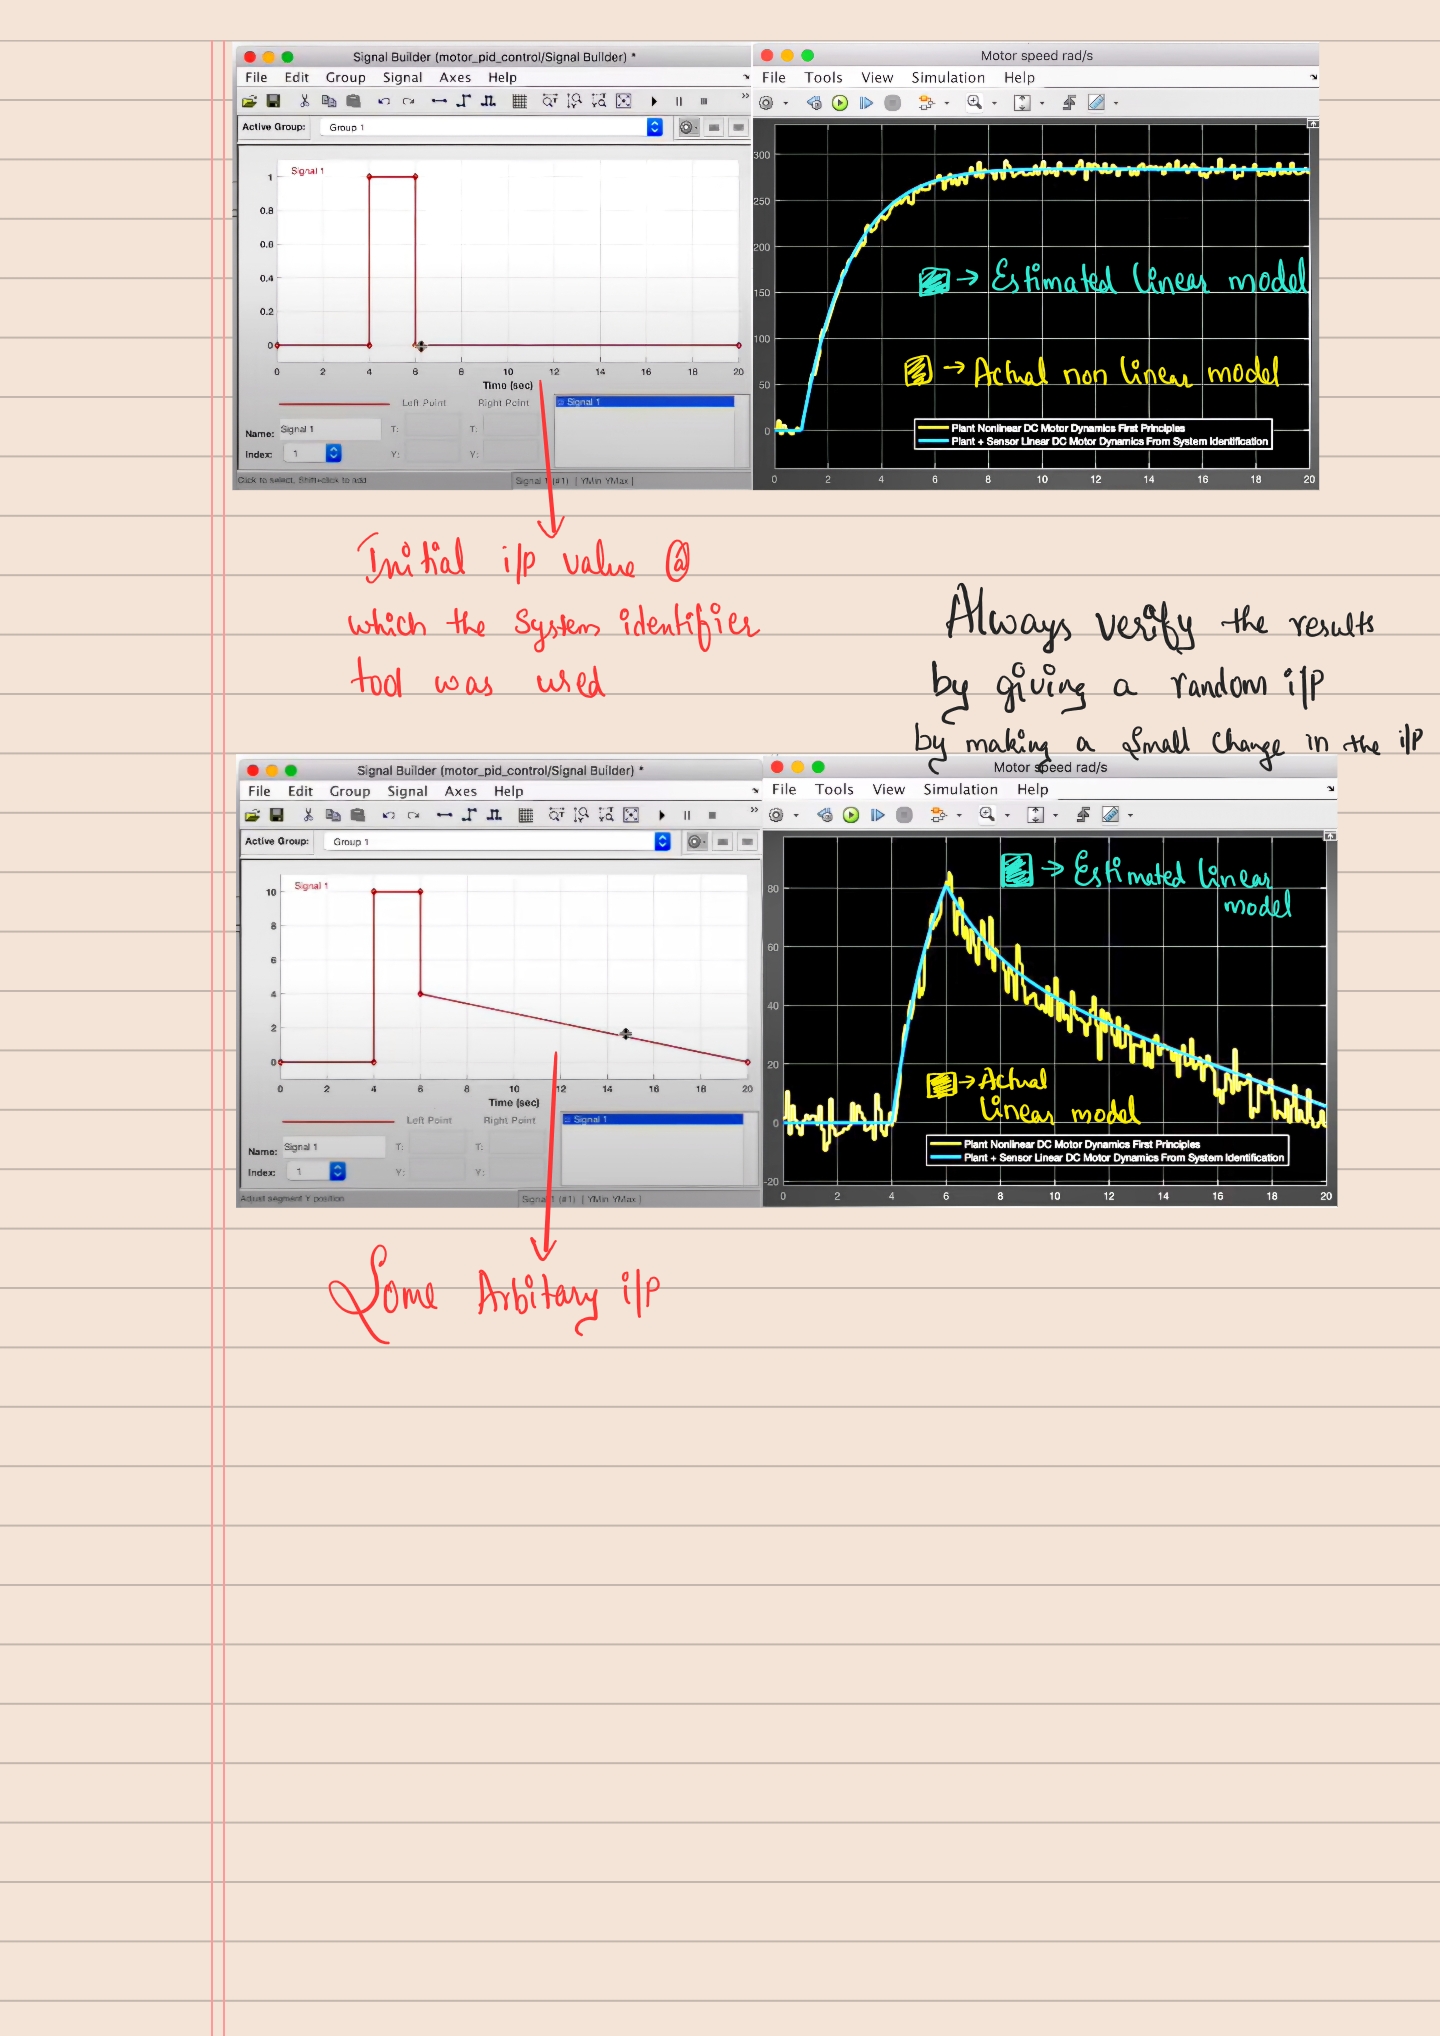 Signal Builder (motor_pid_control/Signal Builder) *
File Edit Group Signal Axes Help
Active Group: Group 1
Signal 1
1
0.8
0.6
0.4
0.2
0
0 2 4 6 8 10 12 14 16 18 20
Time (sec)
Left Point Right Point
Signal 1
Name: Signal 1 T: T:
Index: 1 Y: Y:
Click to select, Shift+click to add
Signal 1 (#1) [ YMin YMax ]
Motor speed rad/s
File Tools View Simulation Help
300
250
200
150
100
50
0
→ Estimated linear model
→ Actual non linear model
Plant Nonlinear DC Motor Dynamics First Principles
Plant + Sensor Linear DC Motor Dynamics From System Identification
0 2 4 6 8 10 12 14 16 18 20
Initial i/p value @
which the System identifier
tool was used
Always verify the results
by giving a random i/p
by making a small change in the i/p
Signal Builder (motor_pid_control/Signal Builder) *
File Edit Group Signal Axes Help
Active Group: Group 1
Signal 1
10
8
6
4
2
0
0 2 4 6 8 10 12 14 16 18 20
Time (sec)
Left Point Right Point
Signal 1
Name: Signal 1 T: T:
Index: 1 Y: Y:
Adjust segment Y position
Signal 1 (#1) [ YMin YMax ]
Motor speed rad/s
File Tools View Simulation Help
80
60
40
20
0
-20
→ Estimated linear
model
→ Actual
linear model
Plant Nonlinear DC Motor Dynamics First Principles
Plant + Sensor Linear DC Motor Dynamics From System Identification
0 2 4 6 8 10 12 14 16 18 20
Some Arbitary i/p